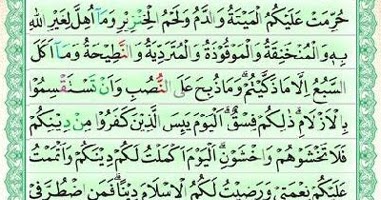 حُرِّمَتْ عَلَيْكُمُ الْمَيْتَةُ وَالدَّمُ وَلَحْمُ الْخِنْزِيْرِ وَمَاۤ اُهِلَّ لِغَيْرِ اللّٰهِ
بِهٖ وَالْمُنْخَنِقَةُ وَالْمَوْقُوْذَةُ وَالْمُتَرَدِّيَةُ وَالنَّطِيْحَةُ وَمَاۤ اَكَلَ
السَّبُعُ اِلَّا مَا ذَكَّيْتُمْ وَمَا ذُبِحَ عَلَى النُّصُبِ وَاَنْ تَسْتَقْسِمُوْا
بِالْاَزْلَامِ ذٰلِكُمْ فِسْقٌ اَلْيَوْمَ يَئِسَ الَّذِيْنَ كَفَرُوْا مِنْ دِيْنِكُمْ
فَلَا تَخْشَوْهُمْ وَاخْشَوْنِ اَلْيَوْمَ اَكْمَلْتُ لَكُمْ دِيْنَكُمْ وَاَتْمَمْتُ
عَلَيْكُمْ نِعْمَتِيْ وَرَضِيْتُ لَكُمُ الْاِسْلَامَ دِيْنًا فَمَنِ اضْطُرَّ فِيْ